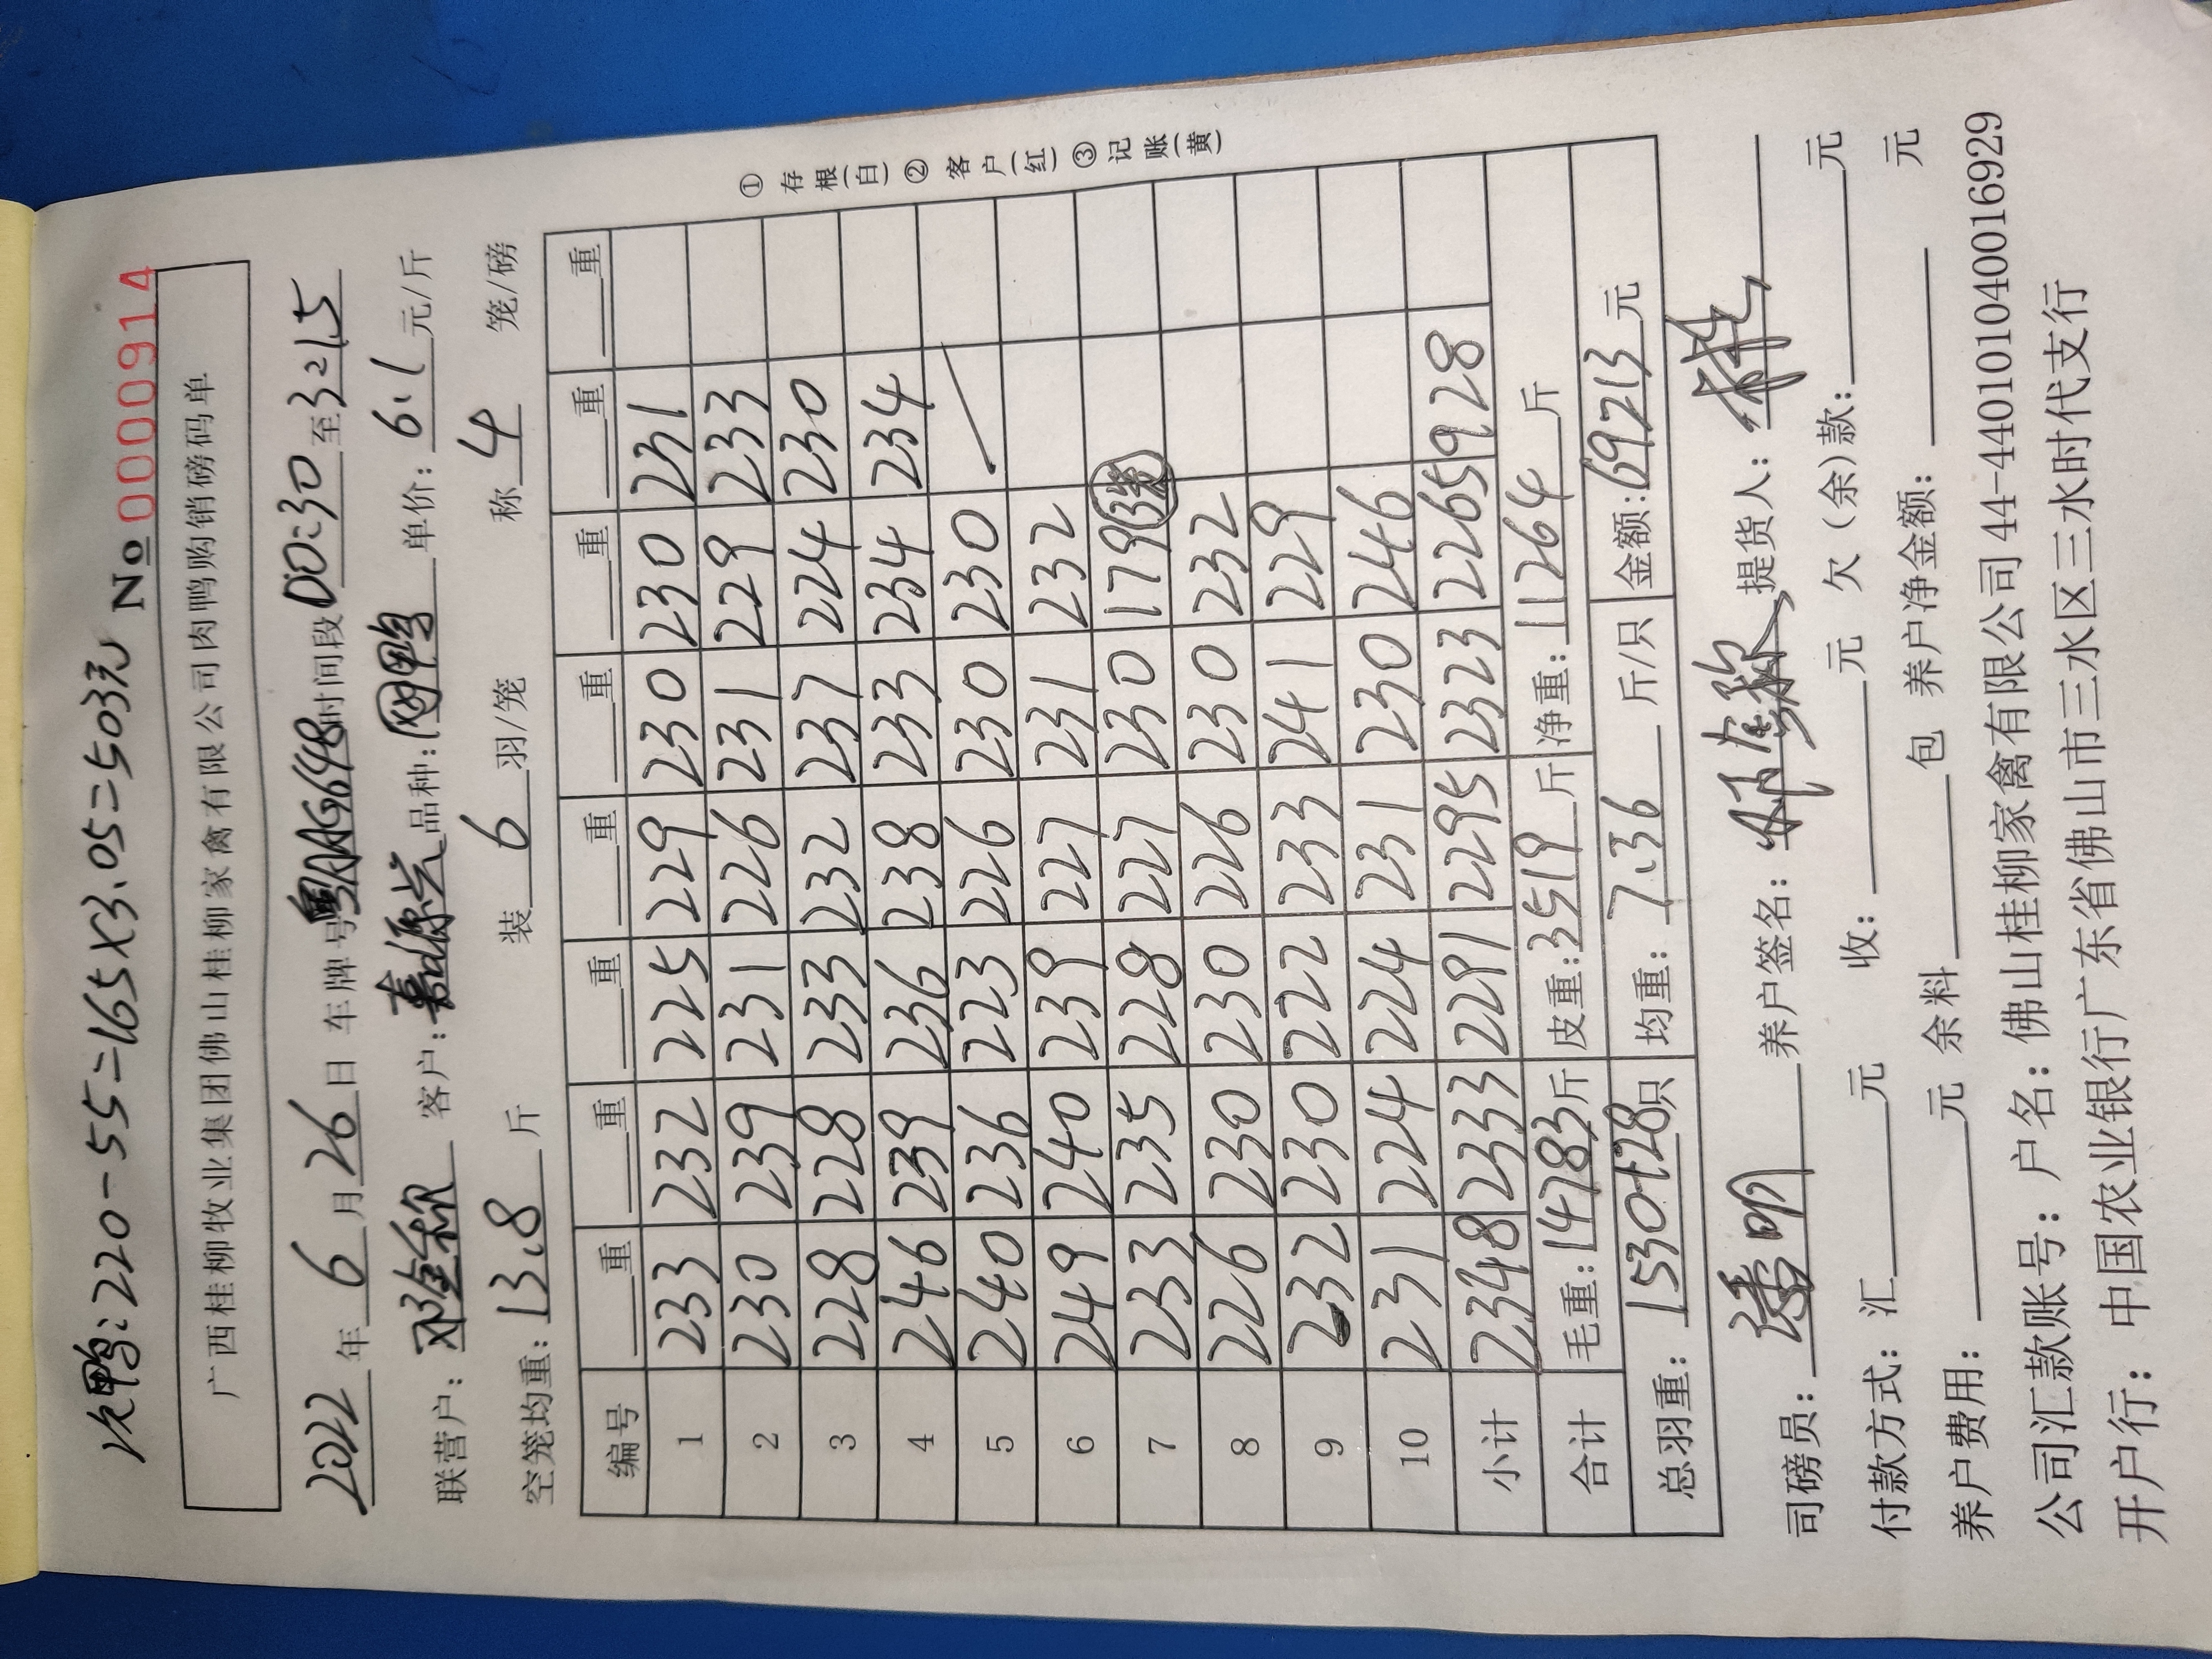 次鸭:220-55=165×3.05=503元 No 0000914
广西桂柳牧业集团佛山桂柳家禽有限公司肉鸭购销磅码单
2022年6月26日 车牌号粤AAG648时间段00:30至3215
联营户: 客户:嘉源兴 品种:网鸭 单价:6.1元/斤
空笼均重:13.8斤 装6羽/笼 称4笼/磅
编号 重 重 重 重 重 重 重 重
1 233 232 225 229 230 230 231
2 230 239 231 226 231 229 233
3 228 228 233 232 237 224 230
4 246 239 236 238 233 234 234
5 240 236 223 226 230 230
6 249 240 239 227 231 232
7 233 235 228 227 230 179(3笼)
8 226 230 230 226 230 232
9 232 230 222 233 241 229
10 231 224 224 231 230 246
小计 2348 2333 2291 2295 2323 2265 928
合计 毛重:14783斤 皮重:3519斤 净重:11264斤
总羽重:1530+28只 均重:7.36斤/只 金额:69213元
①存根(白)②客户(红)③记账(黄)
司磅员:潘明 养户签名: 提货人:
付款方式:汇 元 收: 元 欠(余)款: 元
养户费用: 元 余料 包 养户净金额: 元
公司汇款账号:户名:佛山桂柳家禽有限公司44-440101040016929
开户行:中国农业银行广东省佛山市三水区三水时代支行